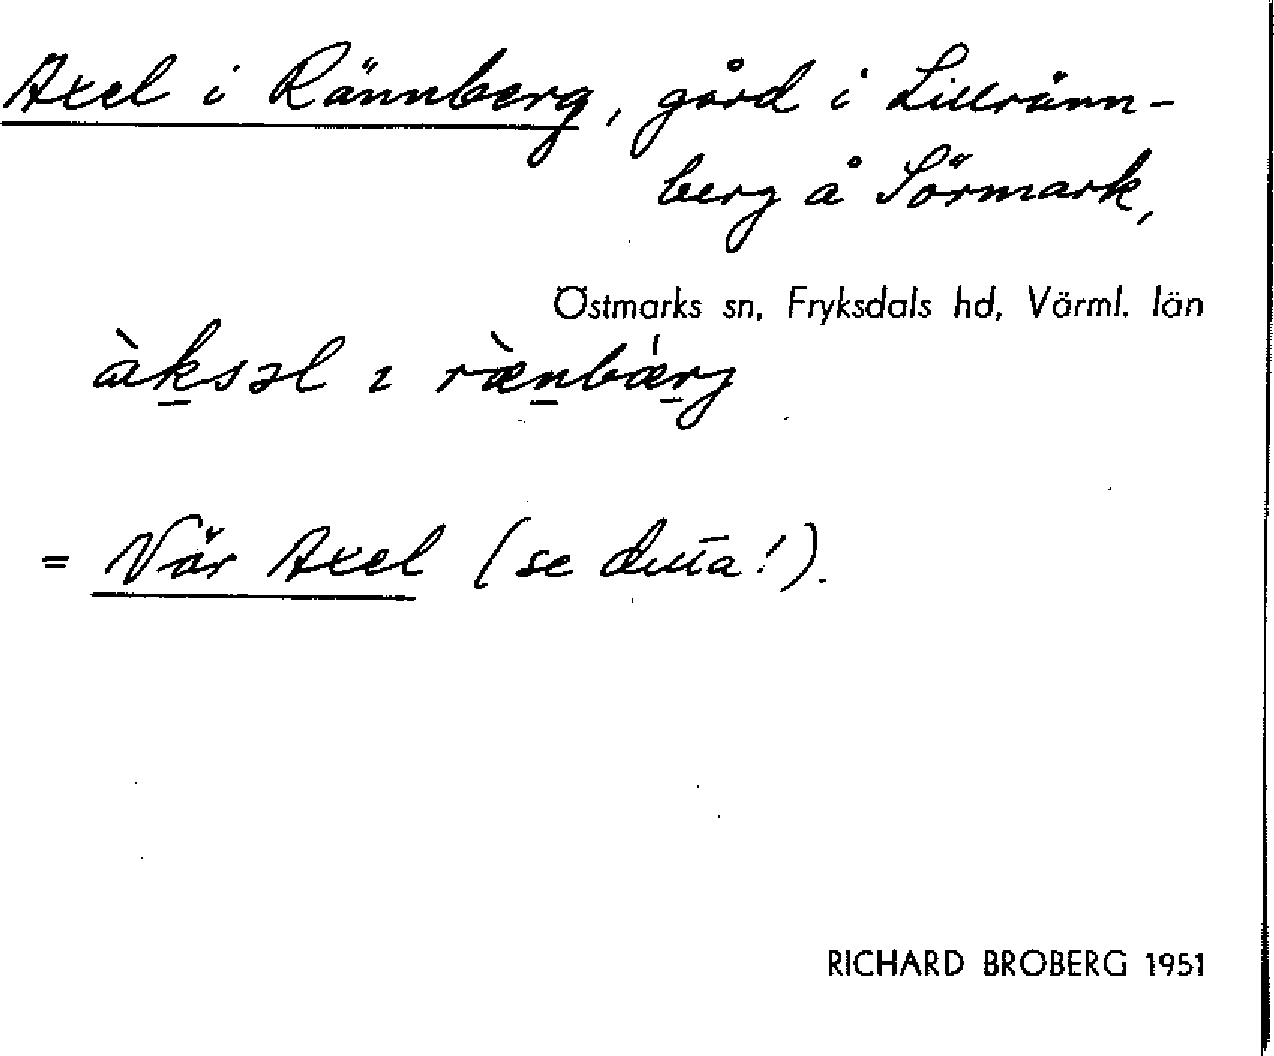 Axel i Rännberg, gård i Lillränn-
berg å Sörmark,
Östmarks sn, Fryksdals hd, Värml. län
àksəl ɪ ræ̀nbærj
= Vår Axel (se detta!).
RICHARD BROBERG 1951